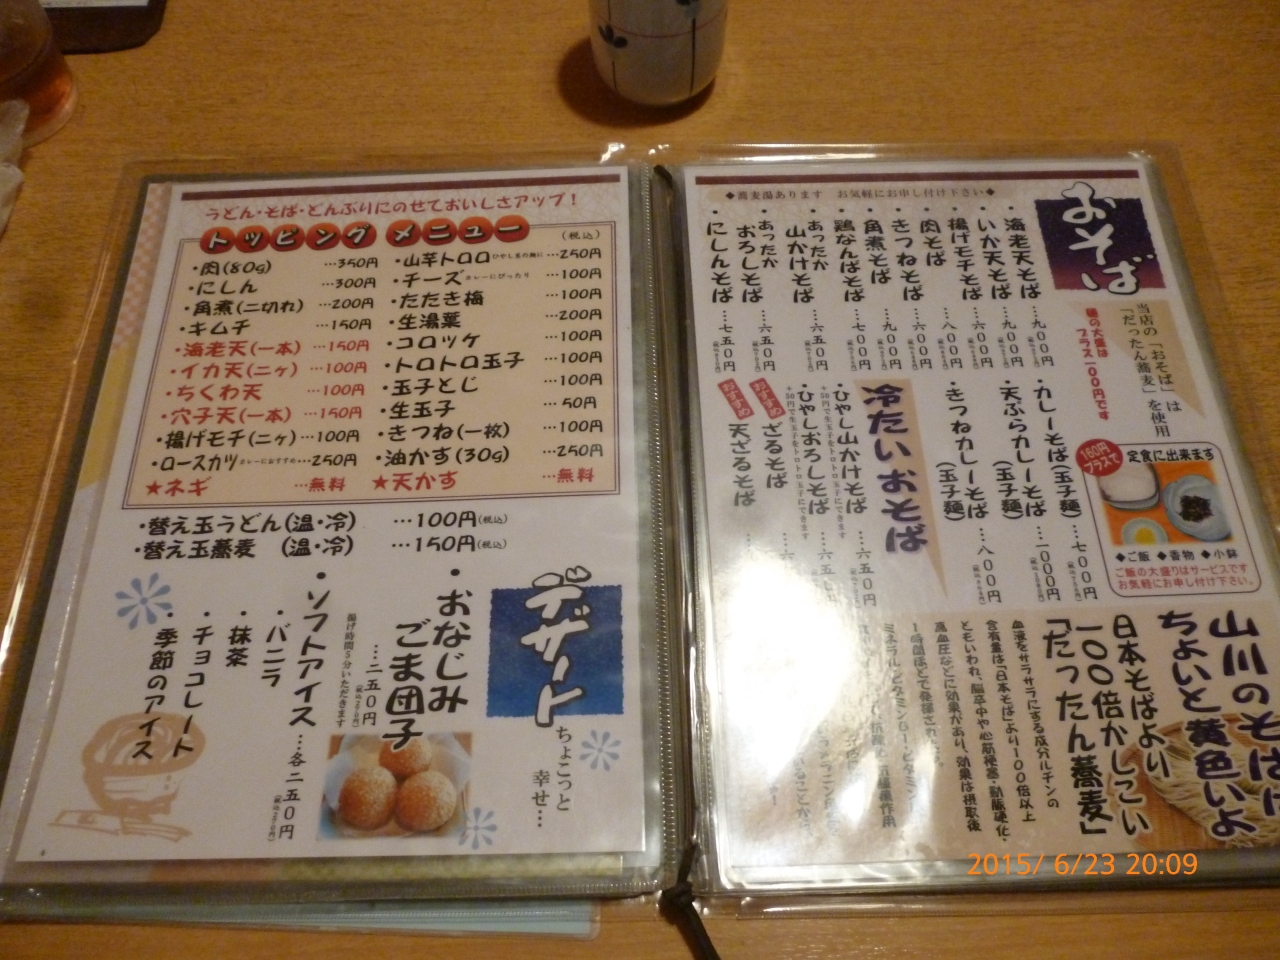 うどん・そば・どんぶりにのせておいしさアップ!
トッピングメニュー
(税込)
・肉(80g) …350円
・にしん …300円
・角煮(二切れ) …200円
・キムチ …150円
・海老天(一本) …150円
・イカ天(二ヶ) …100円
・ちくわ天 …100円
・穴子天(一本) …150円
・揚げモチ(二ヶ) …100円
・ロースカツ カレーにおすすめ …250円
★ネギ …無料
・山芋トロロ …250円
・チーズ カレーにぴったり …100円
・たたき梅 …100円
・生湯葉 …200円
・コロッケ …100円
・トロトロ玉子 …100円
・玉子とじ …100円
・生玉子 …50円
・きつね(一枚) …100円
・油かす(30g) …250円
★天かす …無料
・替え玉うどん(温・冷) …100円(税込)
・替え玉蕎麦 (温・冷) …150円(税込)
デザート
ちょこっと
幸せ…
・おなじみ
ごま団子
…二五〇円
揚げ時間5分いただきます
・ソフトアイス …各二五〇円
・バニラ
・抹茶
・チョコレート
・季節のアイス
◆蕎麦湯あります お気軽にお申し付け下さい◆
おそば
当店の「おそば」は
「だったん蕎麦」を使用
麺の大盛は
プラス一〇〇円です
・海老天そば …九〇〇円
・いか天そば …九〇〇円
・揚げモチそば …六〇〇円
・肉そば …八〇〇円
・きつねそば …六〇〇円
・角煮そば …九〇〇円
・鶏なんばそば …七〇〇円
・あったか
山かけそば …六五〇円
・あったか
おろしそば …六五〇円
・にしんそば …七五〇円
・カレーそば(玉子麺) …七〇〇円
・天ぷらカレーそば
(玉子麺) …一〇〇〇円
・きつねカレーそば
(玉子麺) …八〇〇円
冷たいおそば
・ひやし山かけそば …六五〇円
・ひやしおろしそば
+50円で生玉子をトロトロ玉子にできます
おすすめ
ざるそば
おすすめ
天ざるそば
160円
プラスで
定食に出来ます
◆ご飯 ◆香物 ◆小鉢
ご飯の大盛りはサービスです
お気軽にお申し付け下さい。
山川のそばは
ちょいと黄色いよ
日本そばより
一〇〇倍かしこい
「だったん蕎麦」
血液をサラサラにする成分ルチンの
含有量は「日本そば」より100倍以上
ともいわれ、脳卒中や心筋梗塞・動脈硬化・
高血圧などに効果があり、効果は摂取後
2015/ 6/23 20:09